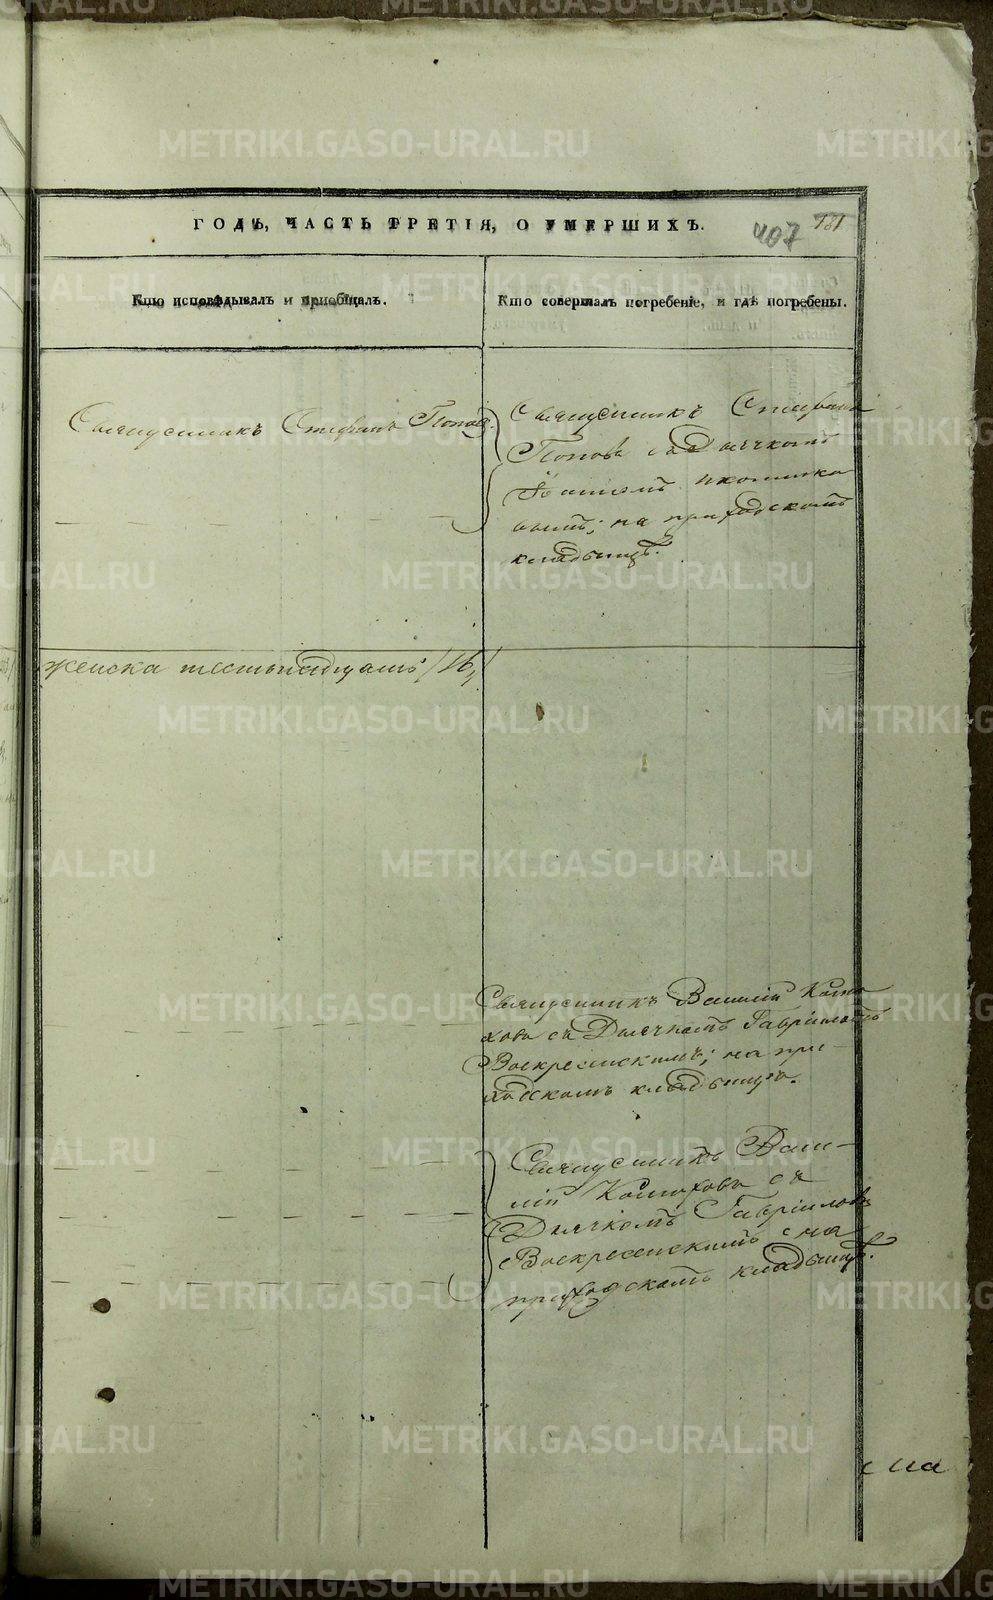 ГОДЪ, ЧАСТЬ ТРЕТІЯ, О УМЕРШИХЪ.
407 781
Кто исповѣдывалъ и приобщалъ.
Кто совершалъ погребеніе, и гдѣ погребены.
Священникъ Стефанъ Поповъ.
Священникъ Стефанъ
Поповъ съ Дьячкомъ
на приходскомъ
кладбищѣ.
женска шестьнадцать /16,/
Священникъ Василій
съ Дьячкомъ Гавріиломъ
Воскресенскимъ; на при-
ходскомъ кладбищѣ.
Священникъ Васи-
лій съ
Дьячкомъ Гавріиломъ
Воскресенскимъ на
приходскомъ кладбищѣ.
METRIKI.GASO-URAL.RU